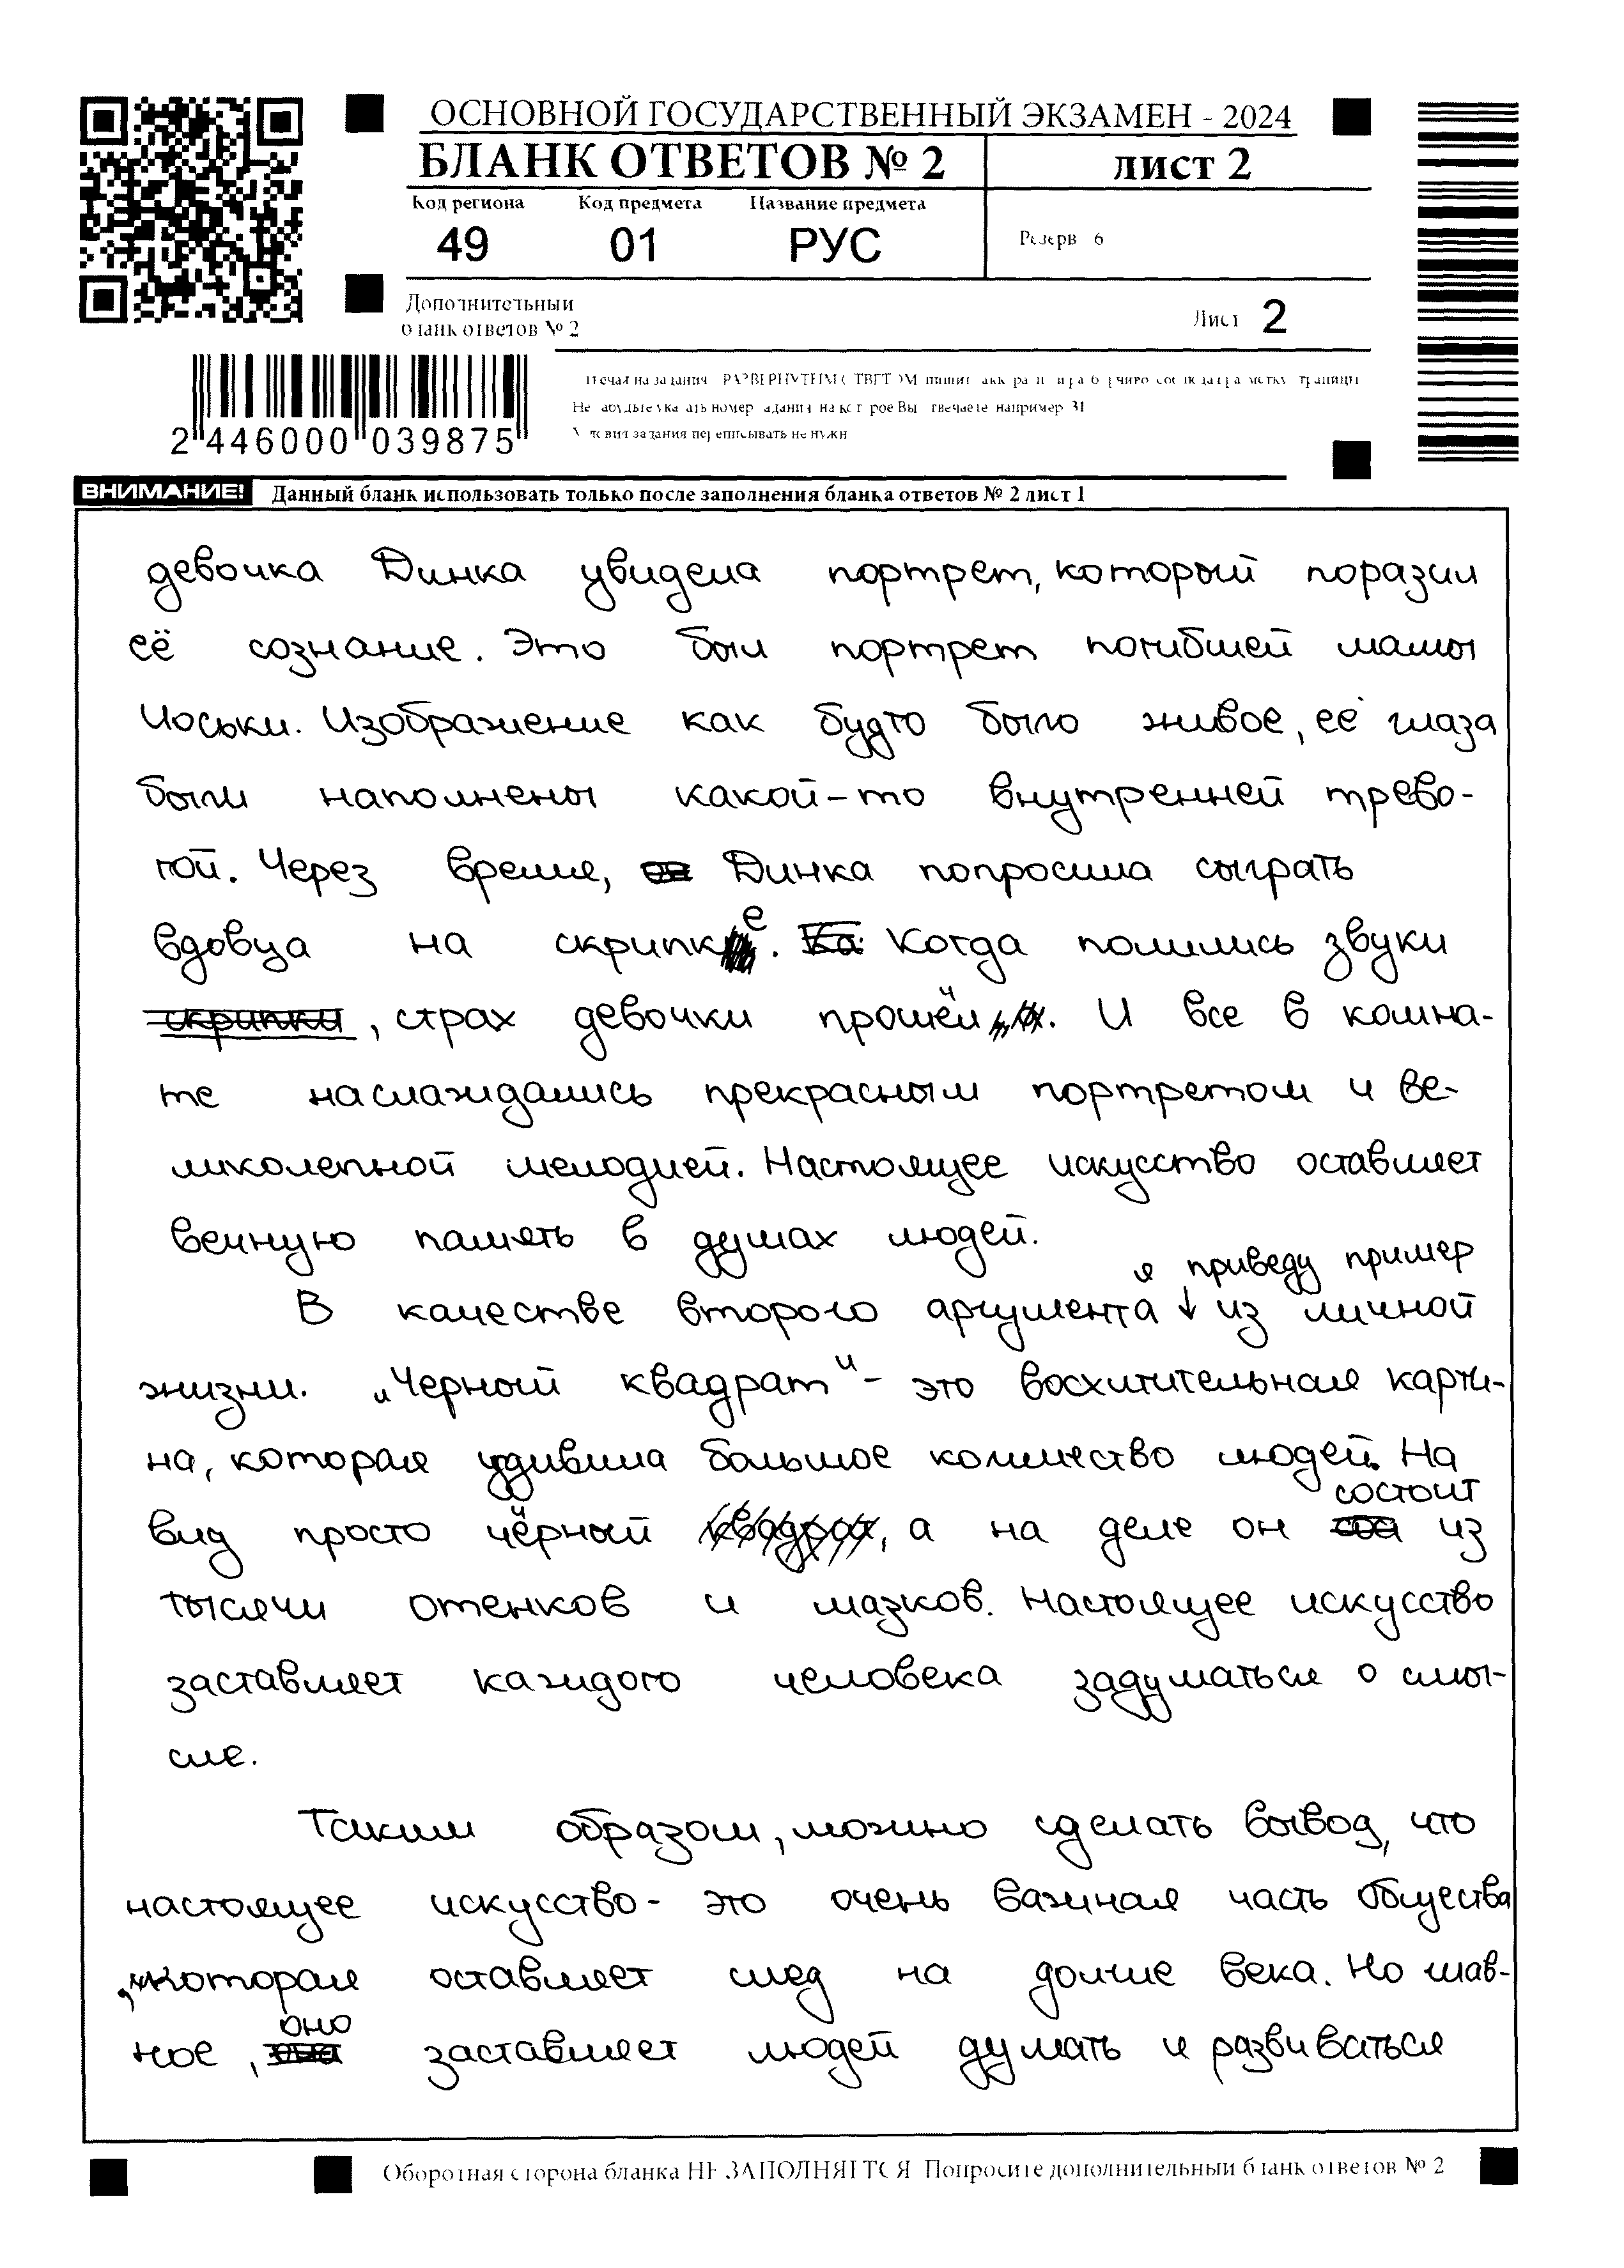 ОСНОВНОЙ ГОСУДАРСТВЕННЫЙ ЭКЗАМЕН - 2024
БЛАНК ОТВЕТОВ № 2
лист 2
Код региона Код предмета Название предмета
49 01 РУС
Резерв 6
Дополнительный
бланк ответов № 2
Лист 2
2 446000 039875
ВНИМАНИЕ! Данный бланк использовать только после заполнения бланка ответов № 2 лист 1
девочка Динка увидела портрет, который поразил
её сознание. Это был портрет погибшей мамы
Иоськи. Изображение как будто было живое, её глаза
были наполнены какой-то внутренней трево-
гой. Через время, Динка попросила сыграть
вдовца на скрипке. Когда полились звуки
скрипки, страх девочки прошёл. И все в комна-
те наслаждались прекрасным портретом и ве-
ликолепной мелодией. Настоящее искусство оставляет
вечную память в душах людей.
В качестве второго аргумента я приведу пример из личной
жизни. „Черный квадрат“ - это восхитительная карти-
на, которая удивила большое количество людей. На
вид просто чёрный квадрат, а на деле он состоит из
тысячи отенков и мазков. Настоящее искусство
заставляет каждого человека задуматься о смы-
сле.
Таким образом, можно сделать вывод, что
настоящее искусство - это очень важная часть общества
, которая оставляет след на долгие века. Но глав-
ное, оно заставляет людей думать и развиваться
Оборотная сторона бланка НЕ ЗАПОЛНЯЕТСЯ. Попросите дополнительный бланк ответов № 2